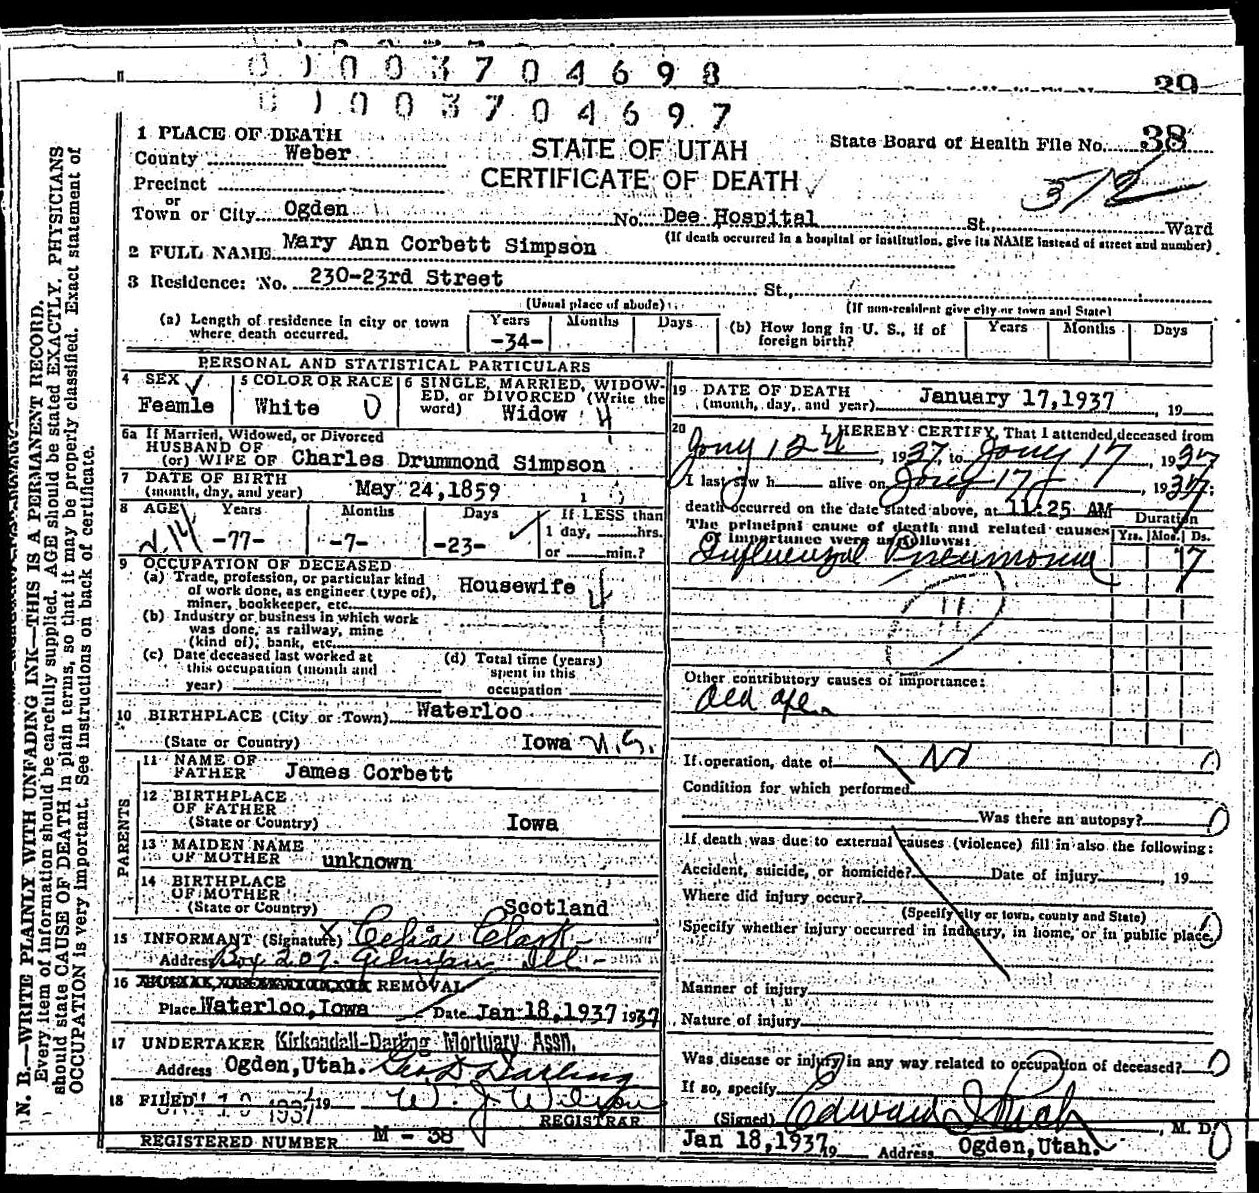 0 0 0 3 7 0 4 6 9 8
39
0 0 0 3 7 0 4 6 9 7
1 PLACE OF DEATH
County Weber
STATE OF UTAH
CERTIFICATE OF DEATH
State Board of Health File No. 38
312
Precinct
or
Town or City Ogden No. Dee Hospital St., Ward
(If death occurred in a hospital or institution, give its NAME instead of street and number)
2 FULL NAME Mary Ann Corbett Simpson
3 Residence: No. 230-23rd Street St.,
(Usual place of abode) (If non-resident give city or town and State)
(a) Length of residence in city or town where death occurred. Years -34- Months Days (b) How long in U. S., if of foreign birth? Years Months Days
PERSONAL AND STATISTICAL PARTICULARS
4 SEX Feamle
5 COLOR OR RACE White
6 SINGLE, MARRIED, WIDOW-
ED, or DIVORCED (Write the
word) Widow 4
6a If Married, Widowed, or Divorced
HUSBAND OF
(or) WIFE OF Charles Drummond Simpson
7 DATE OF BIRTH
(month, day, and year) May 24,1859
8 AGE Years -77- Months -7- Days -23- If LESS than
1 day, hrs.
or min.?
9 OCCUPATION OF DECEASED
(a) Trade, profession, or particular kind
of work done, as engineer (type of),
miner, bookkeeper, etc. Housewife
(b) Industry or business in which work
was done, as railway, mine
(kind of), bank, etc.
(c) Date deceased last worked at
this occupation (month and
year)
(d) Total time (years)
spent in this
occupation
10 BIRTHPLACE (City or Town) Waterloo
(State or Country) Iowa U.S.
PARENTS
11 NAME OF
FATHER James Corbett
12 BIRTHPLACE
OF FATHER
(State or Country) Iowa
13 MAIDEN NAME
OF MOTHER unknown
14 BIRTHPLACE
OF MOTHER
(State or Country) Scotland
15 INFORMANT (Signature) X Celia Clark
Address Box 207. Gilman Ill -
16 REMOVAL
Place Waterloo,Iowa Date Jan 18,1937 1937
17 UNDERTAKER Kirkendall-Darling Mortuary Assn.
Address Ogden,Utah. Geo D Darling
18 FILED JAN 19 1937 19 W. J. Wilson
REGISTRAR
REGISTERED NUMBER M - 38
19 DATE OF DEATH
(month, day, and year) January 17,1937 , 19
20 I HEREBY CERTIFY, That I attended deceased from
Jany 12th, 1937, to Jany 17, 1937
I last saw h alive on Jany 17, 1937;
death occurred on the date stated above, at 11:25 AM
The principal cause of death and related causes
of importance were as follows: Duration
Yrs. Mos. Ds.
Influenzal Pneumonia 7
11
Other contributory causes of importance:
Old age
If operation, date of No
Condition for which performed
Was there an autopsy?
If death was due to external causes (violence) fill in also the following:
Accident, suicide, or homicide? Date of injury , 19
Where did injury occur?
(Specify city or town, county and State)
Specify whether injury occurred in industry, in home, or in public place
Manner of injury
Nature of injury
Was disease or injury in any way related to occupation of deceased?
If so, specify
(Signed) Edward I Rich , M. D.
Jan 18,1937 19 Address Ogden,Utah.
N. B.—WRITE PLAINLY WITH UNFADING INK—THIS IS A PERMANENT RECORD.
Every item of information should be carefully supplied. AGE should be stated EXACTLY. PHYSICIANS
should state CAUSE OF DEATH in plain terms, so that it may be properly classified. Exact statement of
OCCUPATION is very important. See instructions on back of certificate.